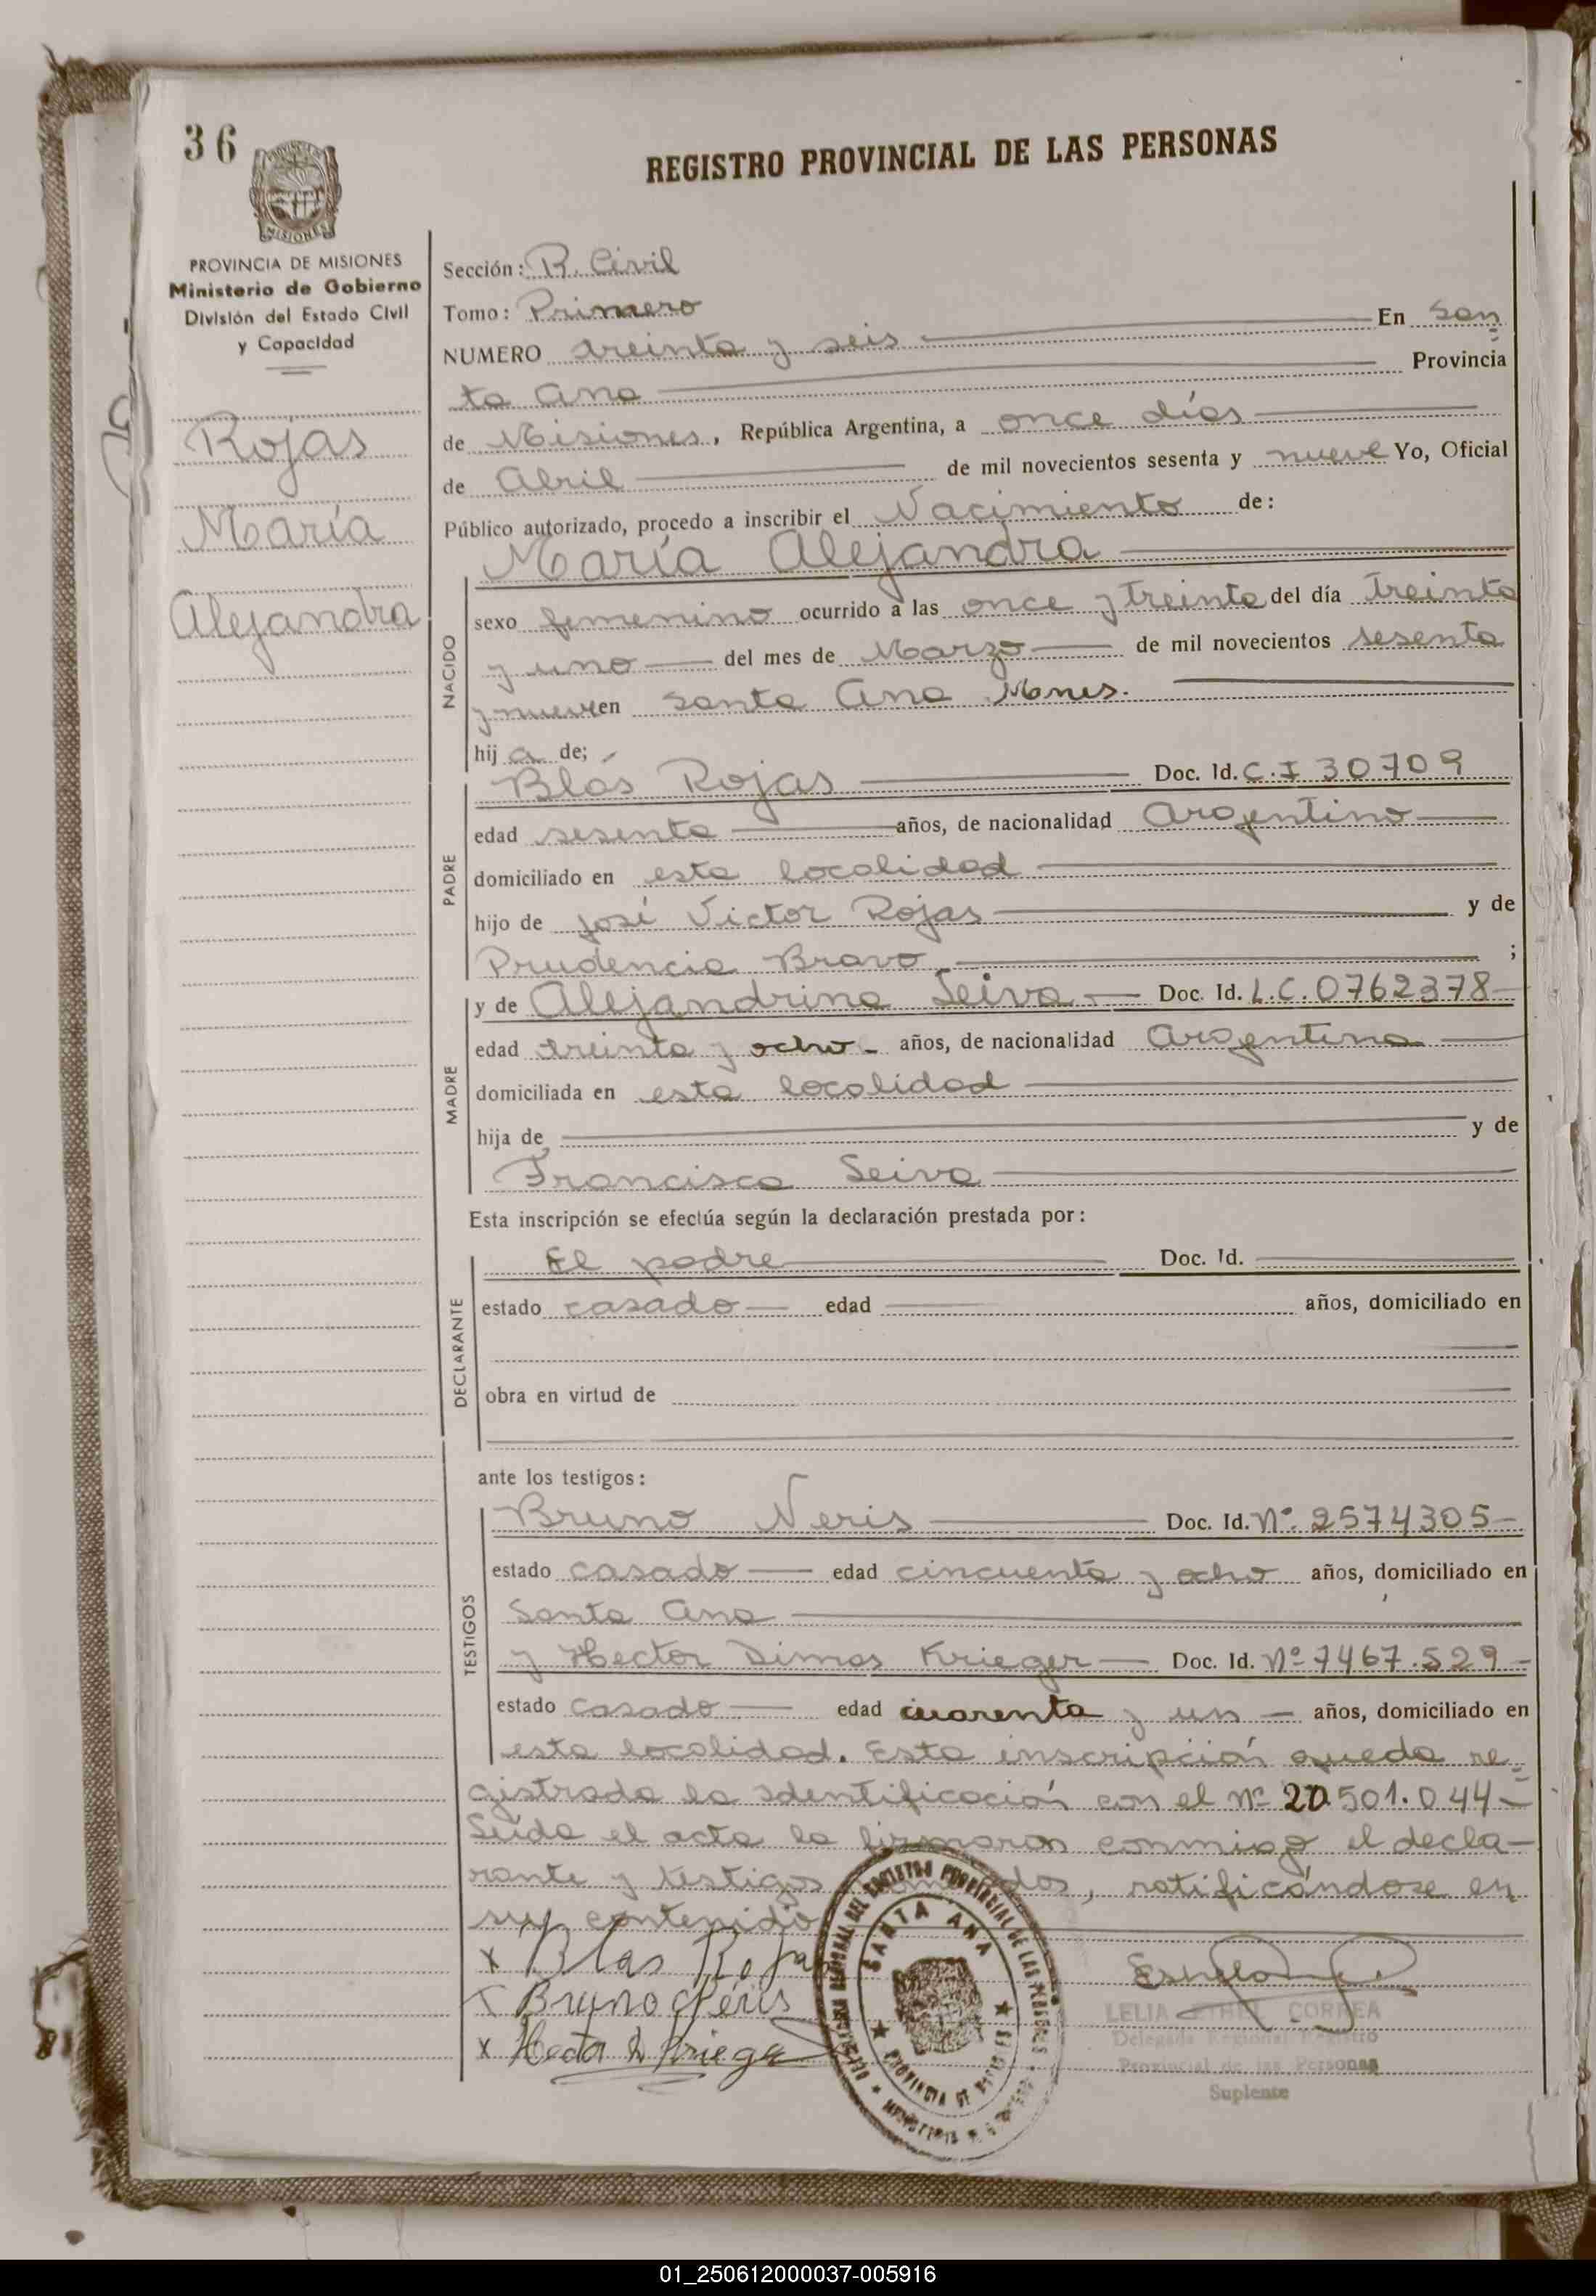 36
REGISTRO PROVINCIAL DE LAS PERSONAS
MISIONES
PROVINCIA DE MISIONES
Ministerio de Gobierno
División del Estado Civil
y Capacidad
Rojas
María
Alejandra
Sección: R. Civil
Tomo: Primero
NUMERO treinta y seis En San
ta Ana Provincia
de Misiones, República Argentina, a once días
de Abril de mil novecientos sesenta y nueve Yo, Oficial
Público autorizado, procedo a inscribir el Nacimiento de:
María Alejandra
NACIDO
sexo femenino ocurrido a las once y treinta del día treinta
y uno del mes de Marzo de mil novecientos sesenta
y nueve en Santa Ana Mnes.
hija de;
PADRE
Blás Rojas Doc. Id. C.I 30709
edad sesenta años, de nacionalidad Argentino
domiciliado en esta localidad
hijo de José Victor Rojas y de
Prudencia Bravo ;
MADRE
y de Alejandrina Leiva Doc. Id. L.C. 0762378
edad treinta y ocho años, de nacionalidad Argentina
domiciliada en esta localidad
hija de y de
Francisca Leiva
Esta inscripción se efectúa según la declaración prestada por:
DECLARANTE
El padre Doc. Id.
estado casado edad años, domiciliado en
obra en virtud de
ante los testigos:
TESTIGOS
Bruno Neris Doc. Id. Nº. 2574305
estado casado edad cincuenta y ocho años, domiciliado en
Santa Ana
y Hector Dimas Krieger Doc. Id. Nº 7467.529
estado casado edad cuarenta y un años, domiciliado en
esta localidad. Esta inscripción queda re
gistrada la identificación con el Nº 20.501.044
Leida el acta la firmaron conmigo el decla-
rante y testigos, ratificándose en
su contenido
x Blas Rojas
Bruno Neris
x Hector D Krieger
REGISTRO PROVINCIAL DE LAS PERSONAS
SANTA ANA
PROVINCIA DE MISIONES
LELIA ETHEL CORREA
Delegada Regional Registro
Provincial de las Personas
Suplente
01_250612000037-005916